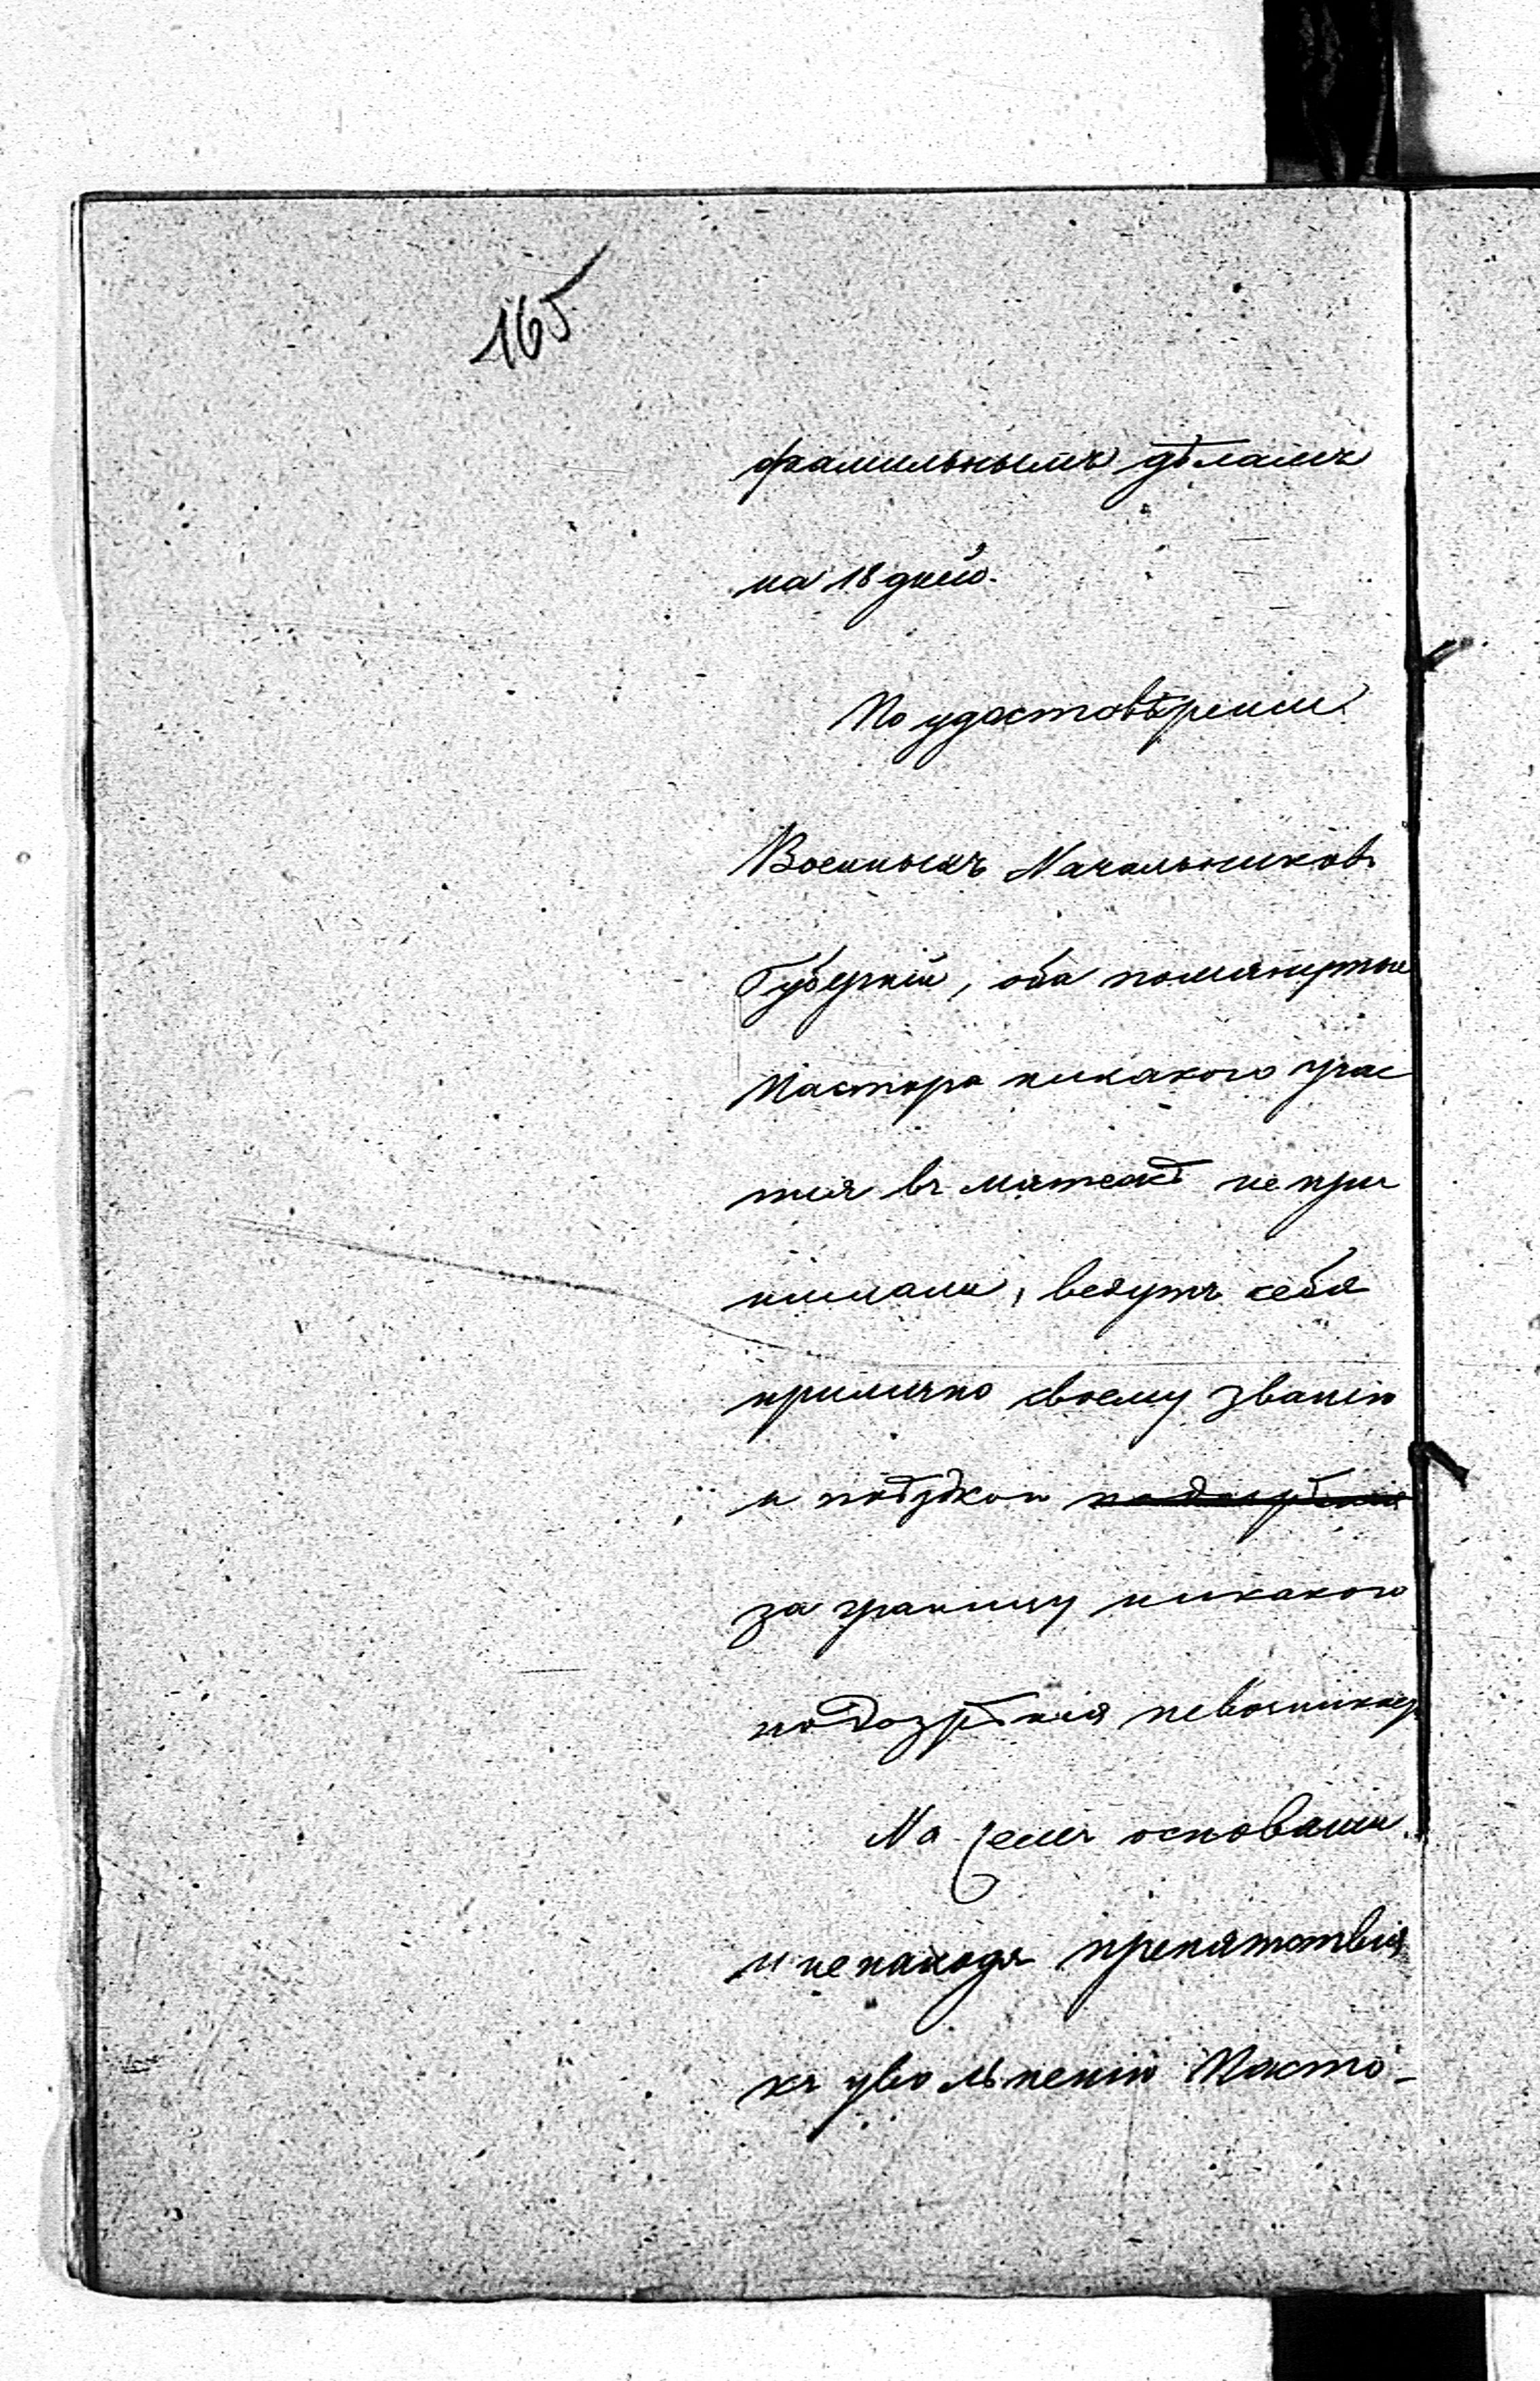 165
фамильнымъ дѣламъ
на 18 дней.
По удостовѣренiи
Военныхъ Начальниковъ
Губернiй, оба помянутые
Пастора никакого учас
тiя въ мятежѣ не при
нимали, ведутъ себя
прилично своему званiю
и поѣздкою подозрѣнiя
за границу никакого
подозрѣнiя невозникаетъ
На семъ основанiи
и ненаходя препятствiя
къ увольненiю Пасто-